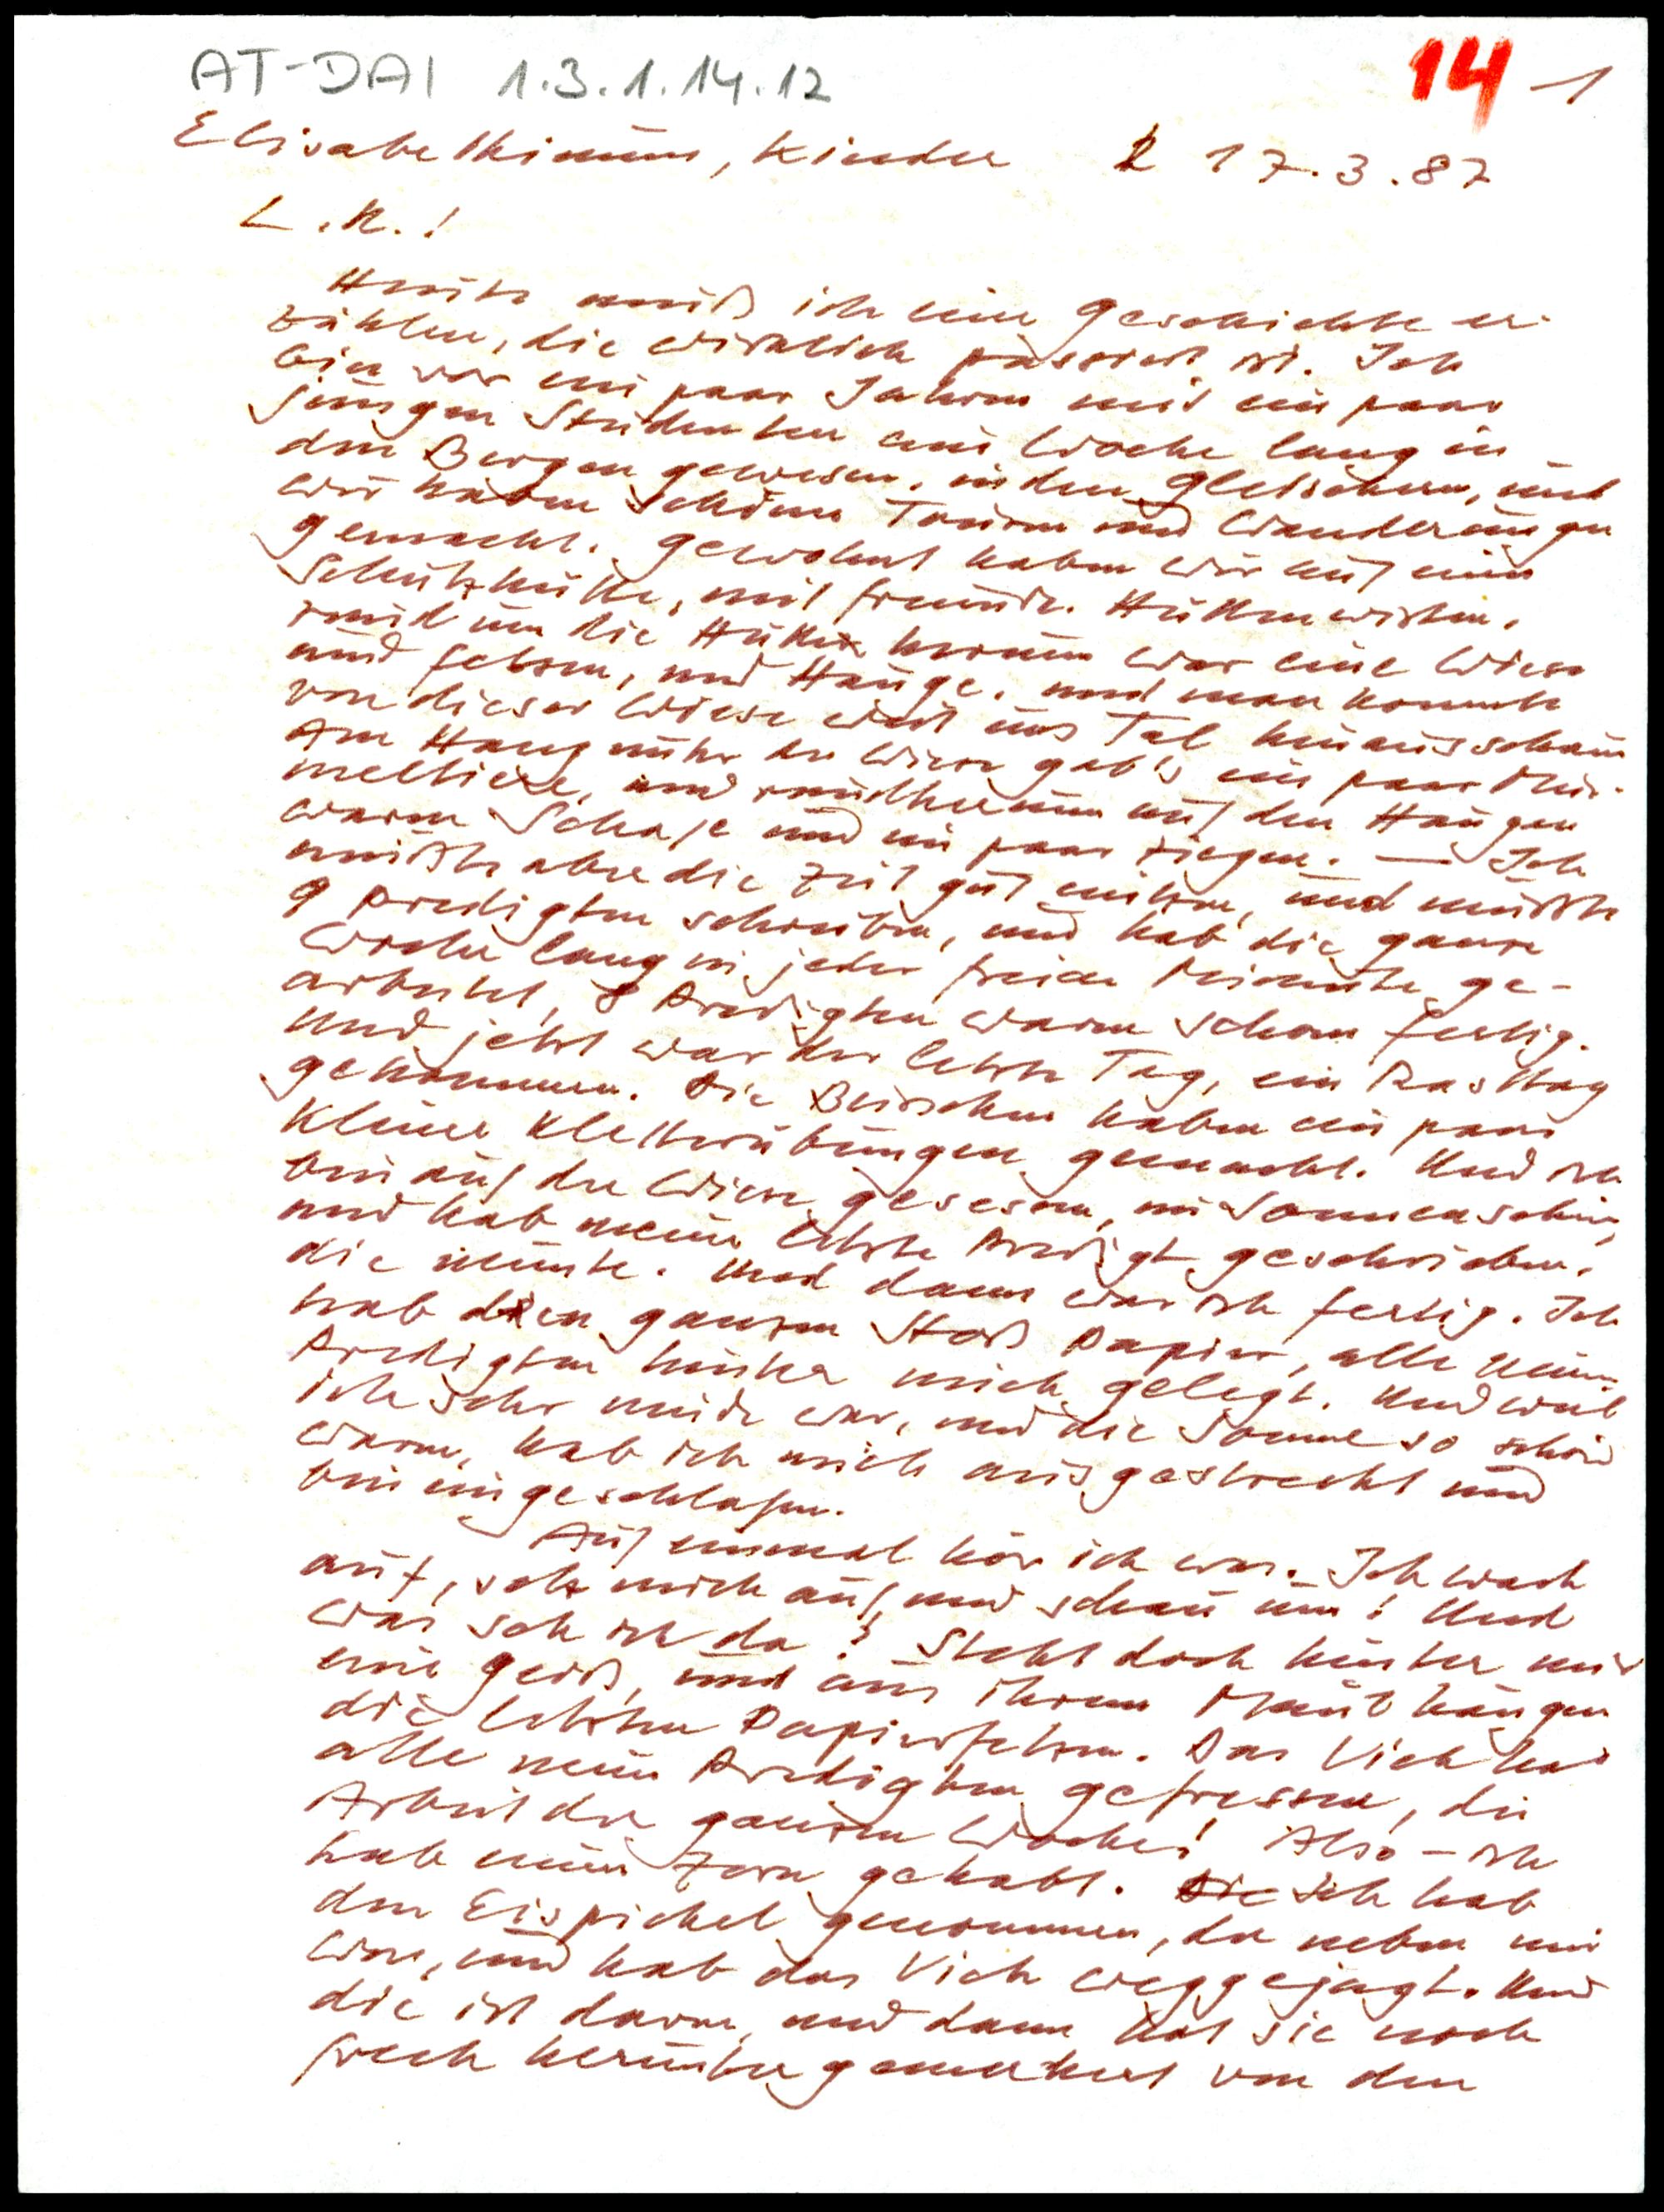 AT-DAI 1.3.1.14.12
14 - 1
Elisabethinum, Kinder 17.3.87
L.K.!
Heute muß ich eine Geschichte er-
zählen, die wirklich passiert ist. Ich
bin vor ein paar Jahren mit ein paar
jungen Studenten eine Woche lang in
den Bergen gewesen, in den Gletschern, und
wir haben schöne Touren und Wanderungen
gemacht. Gewohnt haben wir auf einer
Schutzhütte, mit freundl. Hüttenwirten.
rund um die Hütte herum war eine Wiese
und Felsen, und Hänge. und man konnte
von dieser Wiese weit ins Tal hinausschaun
Am Hang unter der Wiese gab's ein paar Mur-
meltiere, und rundherum auf den Hängen
waren Schafe und ein paar Ziegen. — Ich
mußte aber die Zeit gut nützen, und mußte
9 Predigten schreiben, und hab die ganze
Woche lang in jeder freien Minute ge-
arbeitet, 8 Predigten waren schon fertig.
Und jetzt war der letzte Tag, ein Rasttag
gekommen. Die Burschen haben ein paar
kleine Kletterübungen gemacht. Und ich
bin auf der Wiese gesessen, im Sonnenschein,
und hab meine letzte Predigt geschrieben,
die neunte. Und dann war ich fertig. Ich
hab den ganzen Stoß Papier, alle neun
Predigten hinter mich gelegt. Und weil
ich sehr müde war, und die Sonne so schön
warm, hab ich mich ausgestreckt und
bin eingeschlafen.
Auf einmal hör ich was. Ich wach
auf, setz mich auf und schau um! Und
was seh ich da? Steht doch hinter mir
eine Geiß, und aus ihrem Maul hängen
die letzten Papierfetzen. Das Vieh hat
alle neun Predigten gefressen, die
Arbeit der ganzen Woche! Also – ich
hab einen Zorn gehabt. Ich hab
den Eispickel genommen, der neben mir
war, und hab das Vieh weggejagt. Und
die ist davon, und dann hat sie noch
frech heruntergemeckert von den